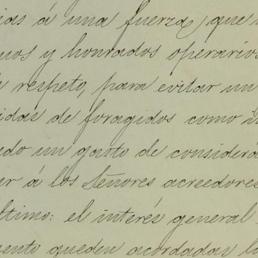 cias á una fuerza, que
uos y honrados operarios
e respeto, para evitar un
idas de foragidos como
edo un gasto de considerá
er á los Señores acreedores
ltimo: el interés general
ento queden acordadas la